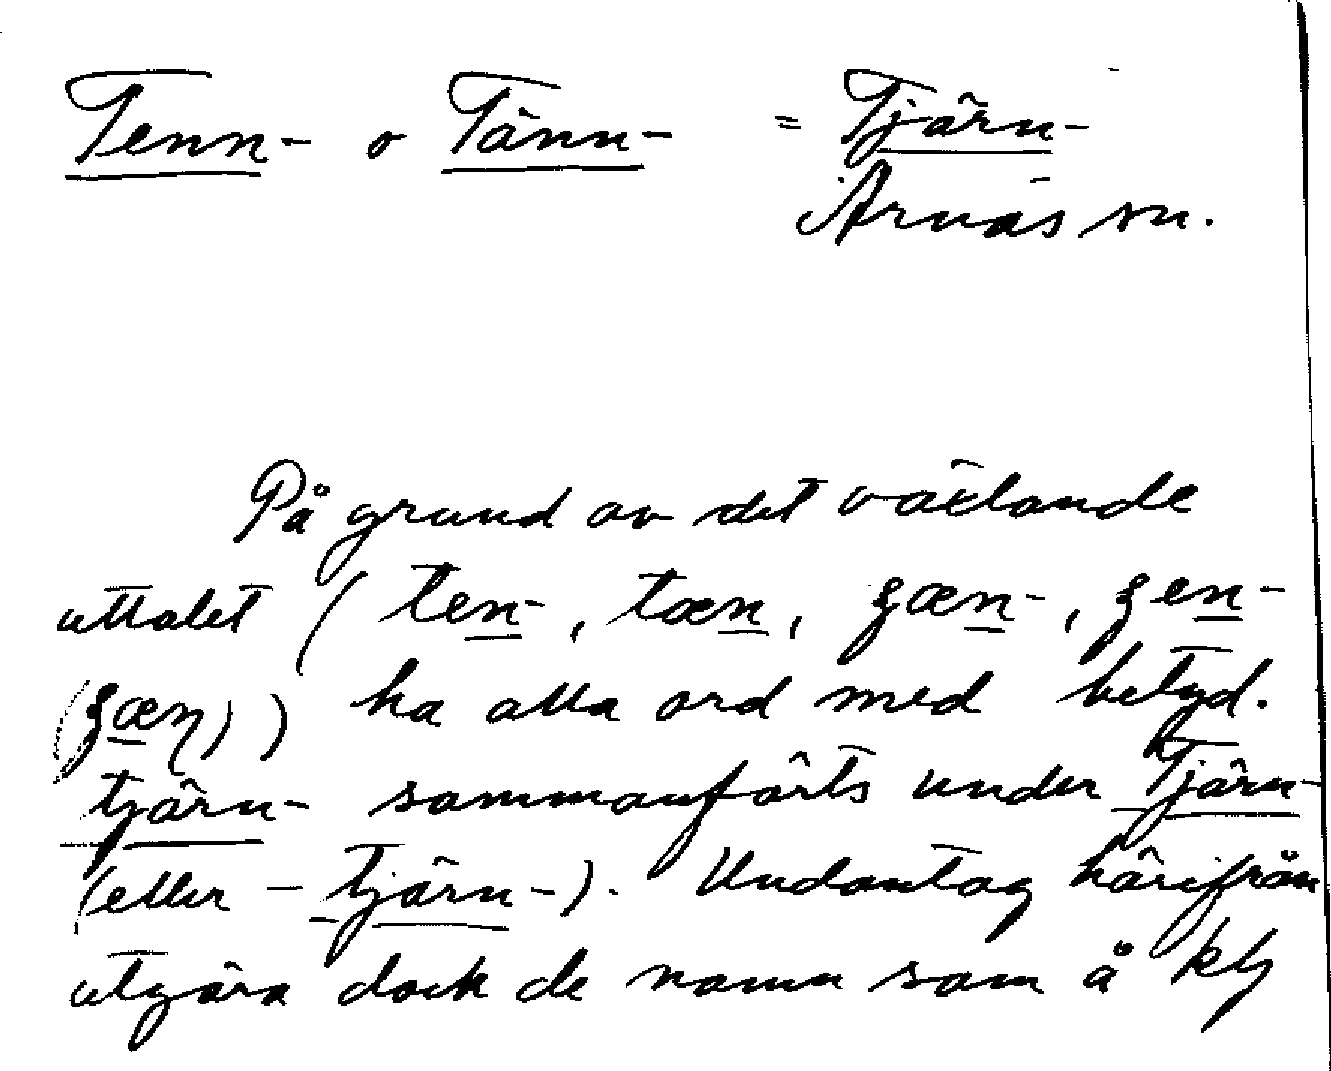 Tenn- o Tänn- = Tjärn-
Arnäs sn.
På grund av det växlande
uttalet ( ten-, tæn, ʒæn-, ʒen-
(ʒæn) ) ha alla ord med betyd.
tjärn- sammanförts under Tjärn-
(eller - tjärn-). Undantag härifrån
utgöra dock de namn som å